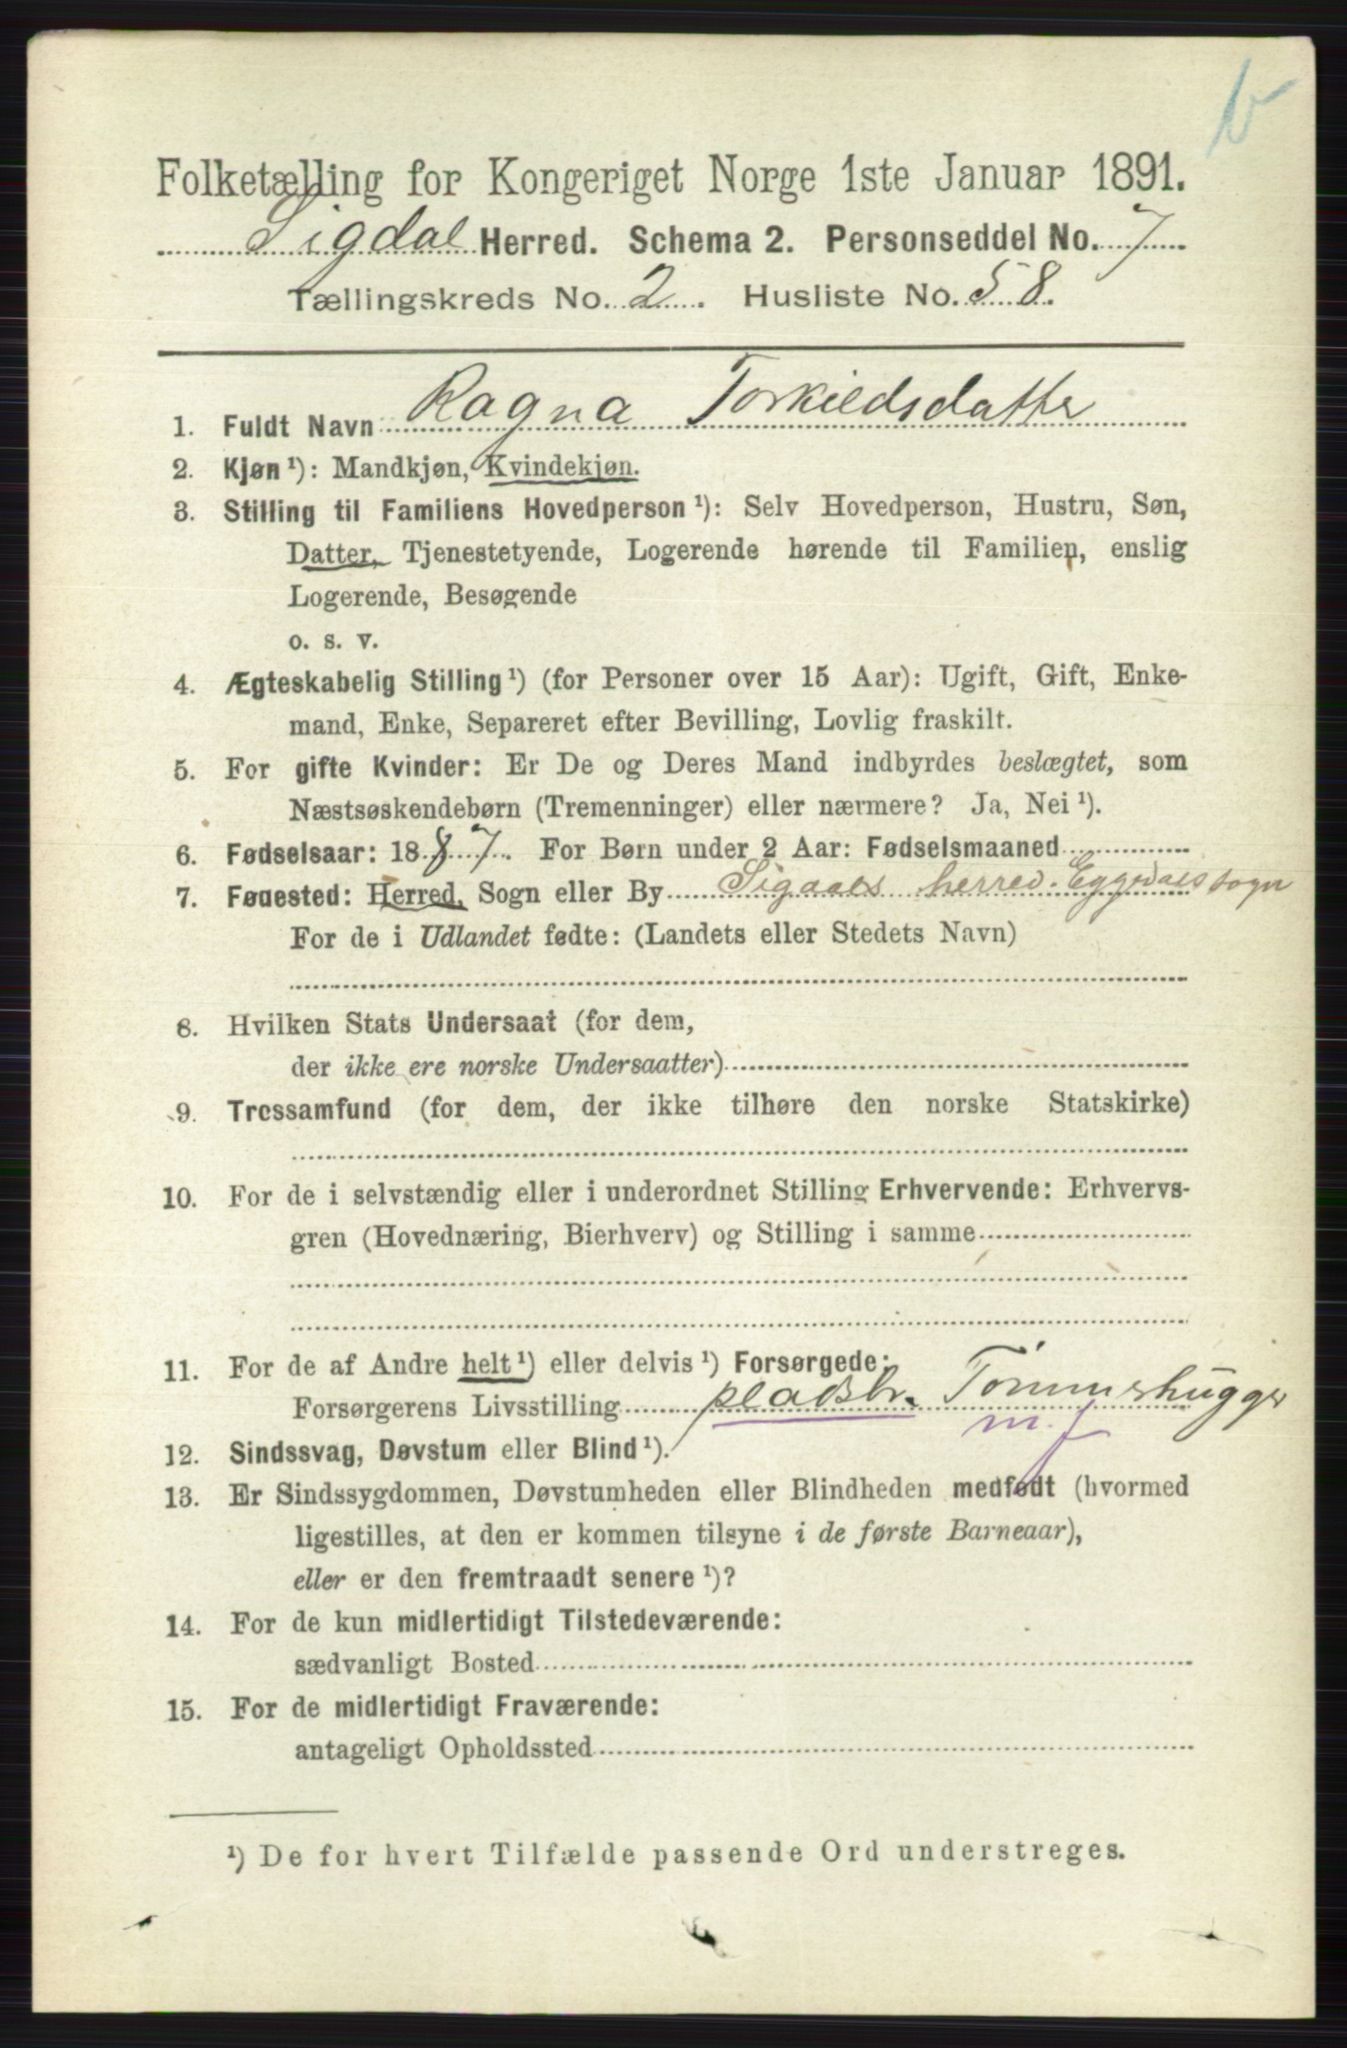 b
Folketælling for Kongeriget Norge 1ste Januar 1891.
Sigdal Herred. Schema 2. Personseddel No. 7
Tællingskreds No. 2. Husliste No. 58.
1. Fuldt Navn Ragna Torkildsdatter
2. Kjøn¹): Mandkjøn, Kvindekjøn.
3. Stilling til Familiens Hovedperson¹): Selv Hovedperson, Hustru, Søn,
Datter, Tjenestetyende, Logerende hørende til Familien, enslig
Logerende, Besøgende
o. s. v.
4. Ægteskabelig Stilling¹) (for Personer over 15 Aar): Ugift, Gift, Enke-
mand, Enke, Separeret efter Bevilling, Lovlig fraskilt.
5. For gifte Kvinder: Er De og Deres Mand indbyrdes beslægtet, som
Næstsøskendebørn (Tremenninger) eller nærmere? Ja, Nei¹).
6. Fødselsaar: 1887. For Børn under 2 Aar: Fødselsmaaned
7. Fødested: Herred, Sogn eller By Sigdals herred. Eggedals sogn
For de i Udlandet fødte: (Landets eller Stedets Navn)
8. Hvilken Stats Undersaat (for dem,
der ikke ere norske Undersaatter)
9. Trossamfund (for dem, der ikke tilhøre den norske Statskirke)
10. For de i selvstændig eller i underordnet Stilling Erhvervende: Erhvervs-
gren (Hovednæring, Bierhverv) og Stilling i samme
11. For de af Andre helt¹) eller delvis¹) Forsørgede:
Forsørgerens Livsstilling pladsbr. Tømmerhugger
m. f
12. Sindssvag, Døvstum eller Blind¹).
13. Er Sindssygdommen, Døvstumheden eller Blindheden medfødt (hvormed
ligestilles, at den er kommen tilsyne i de første Barneaar),
eller er den fremtraadt senere¹)?
14. For de kun midlertidigt Tilstedeværende:
sædvanligt Bosted
15. For de midlertidigt Fraværende:
antageligt Opholdssted
¹) De for hvert Tilfælde passende Ord understreges.